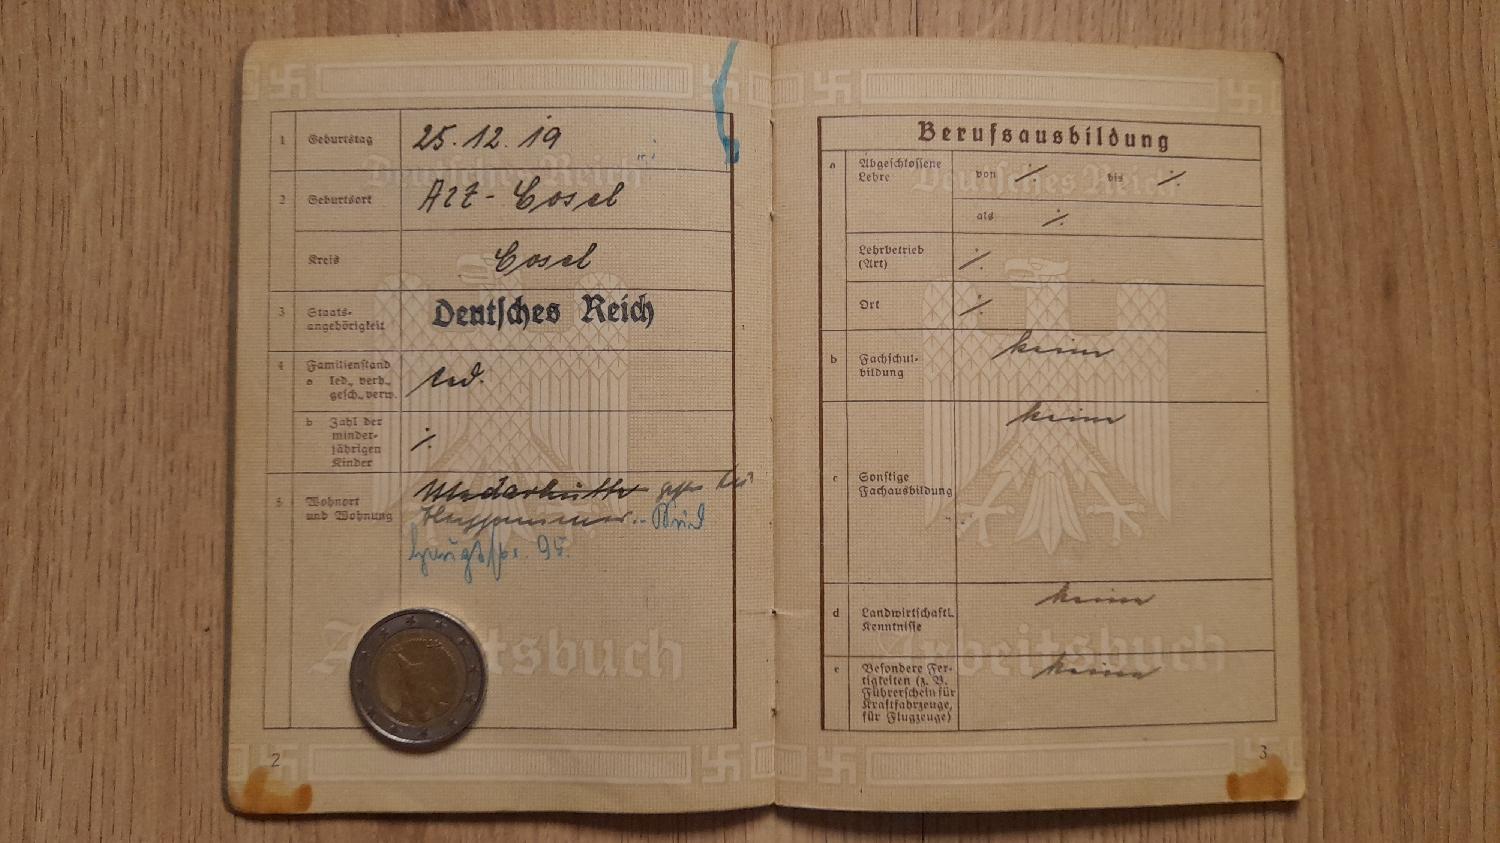 1 Geburtstag 25.12.19
2 Geburtsort Alt-Cosel
Kreis Cosel
3 Staats-
angehörigkeit Deutsches Reich
4 Familienstand
a led., verh.,
gesch., verw. led.
b Zahl der
minder-
jährigen
Kinder ./.
5 Wohnort
und Wohnung
95.
Arbeitsbuch
2
Berufsausbildung
a Abgeschlossene
Lehre von ./. bis ./.
als ./.
Lehrbetrieb
(Art) ./.
Ort ./.
b Fachschul-
bildung keine
c Sonstige
Fachausbildung keine
d Landwirtschaftl.
Kenntnisse keine
e Besondere Fer-
tigkeiten (z. B.
Führerschein für
Kraftfahrzeuge,
für Flugzeuge) keine
Deutsches Reich
Arbeitsbuch
3